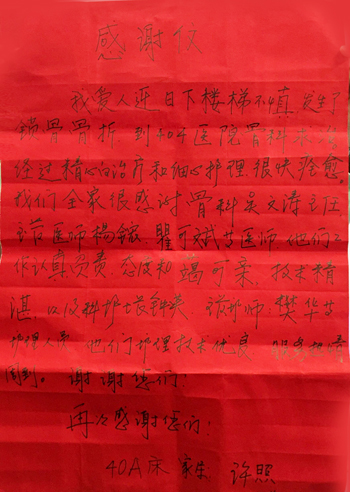 感谢信
我爱人近日下楼梯不慎,发生了
锁骨骨折,到404医院骨科来治
经过精心的治疗和细心护理很快痊愈,
我们全家很感谢骨科吴文涛主任
主治医师杨 瞿可斌等医师,他们工
作认真负责,态度和蔼可亲,技术精
湛,以及科护士长钟 主管护师:樊华等
护理人员,他们护理技术优良,服务热情
周到。谢谢您们
再次感谢您们!
40A床 家人 许照